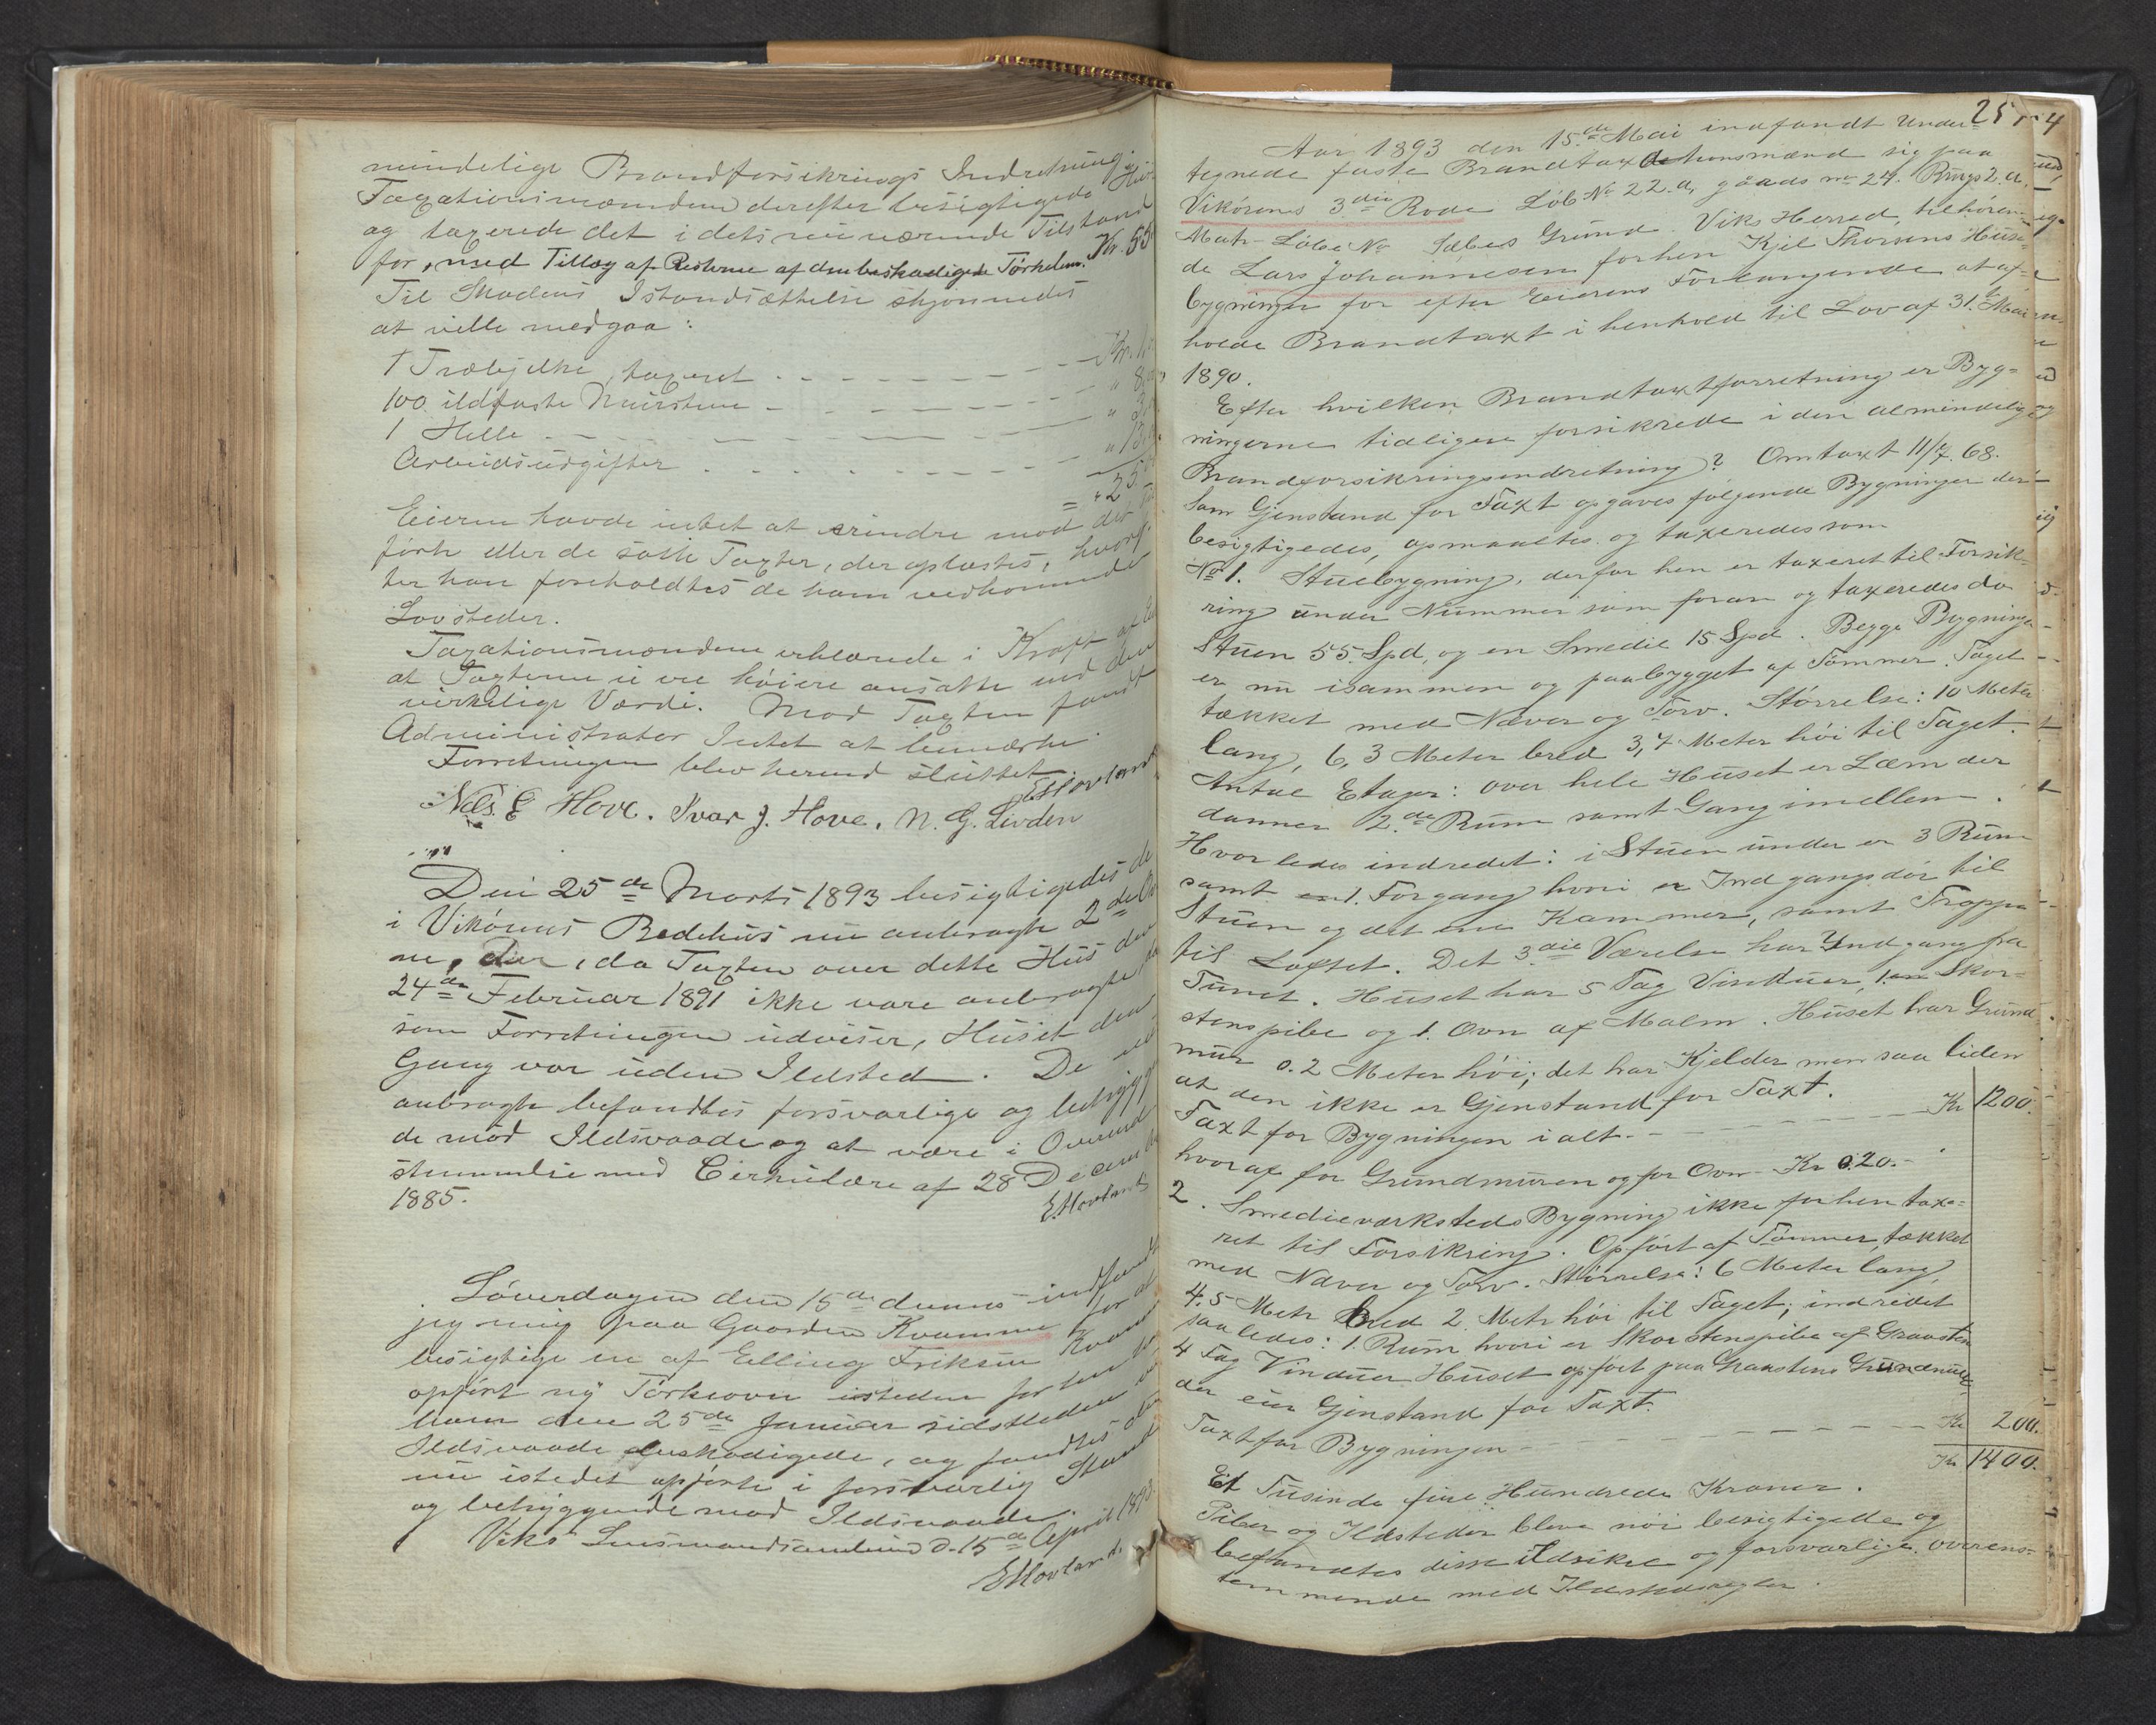 mindelige Brandforsikrings Indretning.
Taxationsmændene derefter besigtigede Hus
og taxerede det i dets nu værende Tilstand
for, med Tillæg af Resterne af den beskadigede Tørkeovn. Kr. 55
Til Skadens Istandsættelse skjønnedes
at ville medgaa:
1 Træbjelke, taxeret - - - - - - Kr. 1,
100 ildfaste Mursten - - - - - - " 8,
1 Helle - - - - - - " 3,
Arbeidsudgifter - - - - - - " 13,
= 25.
Eieren havde intet at erindre mod det
førte eller de satte Taxter, der oplæstes, hvoref-
ter han foreholdtes de ham vedkommende
Lovsteder.
Taxationsmændene erklærede i Kraft af
at Taxterne ei ere høiere ansatte end den
virkelige Værdi. Mod Taxten fandt
Administrator Intet at bemærke.
Forretningen blev hermed sluttet.
EHovland
Nils E Hove. Ivar J. Hove. N. G. Livden
Den 25de Marts 1893 besigtigedes de
i Vikørens Bedehus nu anbragte 2de Ov
ne, der, da Taxten over dette Hus den
24de Februar 1891 ikke vare anbragte
som Forretningen udviser, Huset den
Gang var uden Ildsted. De
anbragte befandtes forsvarlige og betryggen
de mod Ildsvaade og at være i Overens
stemmelse med Cirkulære af 28 Decem
1885.
E.Hovland
Løverdagen den 15de dennes indfandt
jeg mig paa Gaarden Kvamme for at
besigtige en af Elling Eriksen Kvam
opført ny Tørkeovn isteden for den for
ham den 25de Januar sidstleden ved
Ildsvaade beskadigede, og fandtes den
nu istedet opførte i forsvarlig Stand
og betryggende mod Ildsvaade.
Viks Lensmandsembede d. 15de April 1893
EHovland.
254
Aar 1893 den 15.de Mai indfandt under-
tegnede faste Brandtaxationsmænd sig paa
Vikørens 3die Rode Løb No 22.a, gaards no 24. Brugs 2.a.
Matr-Løbe No Sæbes Grund. Viks Herred, tilhøren-
de Lars Johannesen forhen Kjel Thorsens Huse-
bygninger for efter Eierens Forlangende at af-
holde Brandtaxt i henhold til Lov af 31. Mai
1890.
Efter hvilken Brandtaxtforretning er Byg-
ningerne tidligere forsikrede i den almindelige
Brandforsikringsindretning? Omtaxt 11/7.68.
Som Gjenstand for Taxt opgaves følgende Bygninger der
besigtigedes, opmaaltes og taxeredes som
No 1. Stuebygning, der for hen er taxeret til Forsik-
ring under Nummer som foran og taxeredes da
Stuen 55. Spd, og en Smedie 15 Spd. Begge Bygninger
er nu isammen og paabygget af Tømmer. Taget
tækket med Næver og Torv. Størrelse: 10 Meter
lang, 6,3 Meter bred 3,7 Meter høi til Taget.
Antal Etager: over hele Huset er Læm der
danner 2.de Rum samt Gang imellem.
Hvorledes indredet: i Stuen under er 3 Rum
samt en 1. Forgang hvori er Indgangsdør til
Stuen og det ene Kammer, samt Trappe
til Loftet. Det 3.die Værelse har Indgang fra
Tunet. Huset har 5 Fag Vinduer, 1. en Skor-
stenspibe og 1. Ovn af Malm. Huset har Grund
mur 0.2 Meter høi; det har Kjelder men saa liden
at den ikke er Gjenstand for Taxt.
Taxt for Bygningen i alt. - - - - - - Kr 1200.
hvoraf for Grundmuren og for Ovn - Kr 0.20.-
2. Smedieværksteds Bygning ikke forhen taxe-
ret til Forsikring. Opført af Tømmer, tækket
med Næver og Torv. Størrelse: 6 Meter lang,
4.5 Metr bred 2. Metr høi til Taget; indredet
saaledes: 1. Rum hvori er Skorstenspibe af Graasten
4 Fag Vinduer Huset opført paa Graastens Grundmur
der ei er Gjenstand for Taxt.
Taxt for Bygningen - - - - - - Kr 200.
Kr 1400.
Et Tusinde fire Hundrede Kroner.
Piber og Ildsteder bleve nøie besigtigede og
befandtes disse ildsikre og forsvarlige. overens-
temmende med Ildstedsregler.